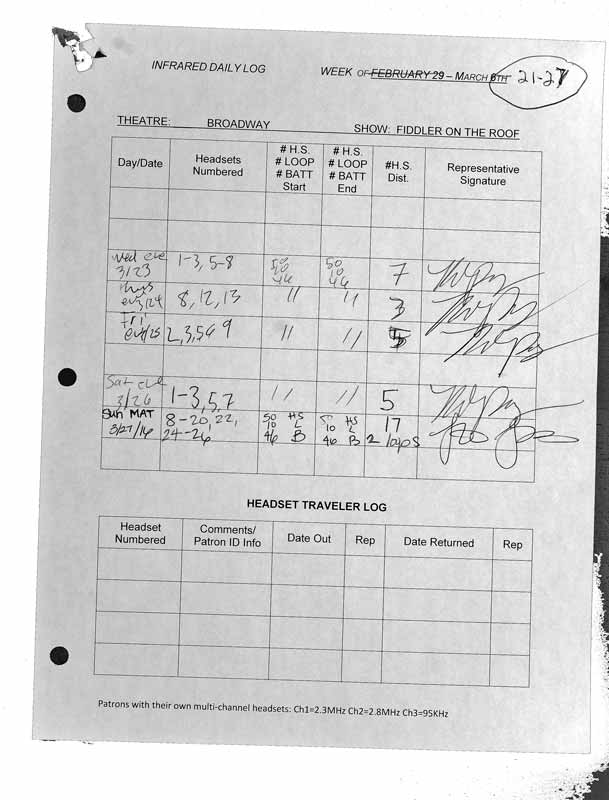 INFRARED DAILY LOG WEEK OF FEBRUARY 29 – MARCH 6TH 21-27
THEATRE: BROADWAY SHOW: FIDDLER ON THE ROOF
Day/Date
Headsets
Numbered
# H.S.
# LOOP
# BATT
Start
# H.S.
# LOOP
# BATT
End
#H.S.
Dist.
Representative
Signature
Wed eve
3/23
1-3, 5-8
50
10
46
50
10
46
7
Thurs
eve 3/24
8, 12, 13
"
"
3
Fri
eve 3/25
2, 3, 5, 6, 9
"
"
5
Sat eve
3/26
1-3, 5, 7
"
"
5
Sun MAT
3/27/16
8-20, 22,
24-26
50 HS
10 L
46 B
50 HS
10 L
46 B
17
2 loops
HEADSET TRAVELER LOG
Headset
Numbered
Comments/
Patron ID Info
Date Out
Rep
Date Returned
Rep
Patrons with their own multi-channel headsets: Ch1=2.3MHz Ch2=2.8MHz Ch3=95KHz